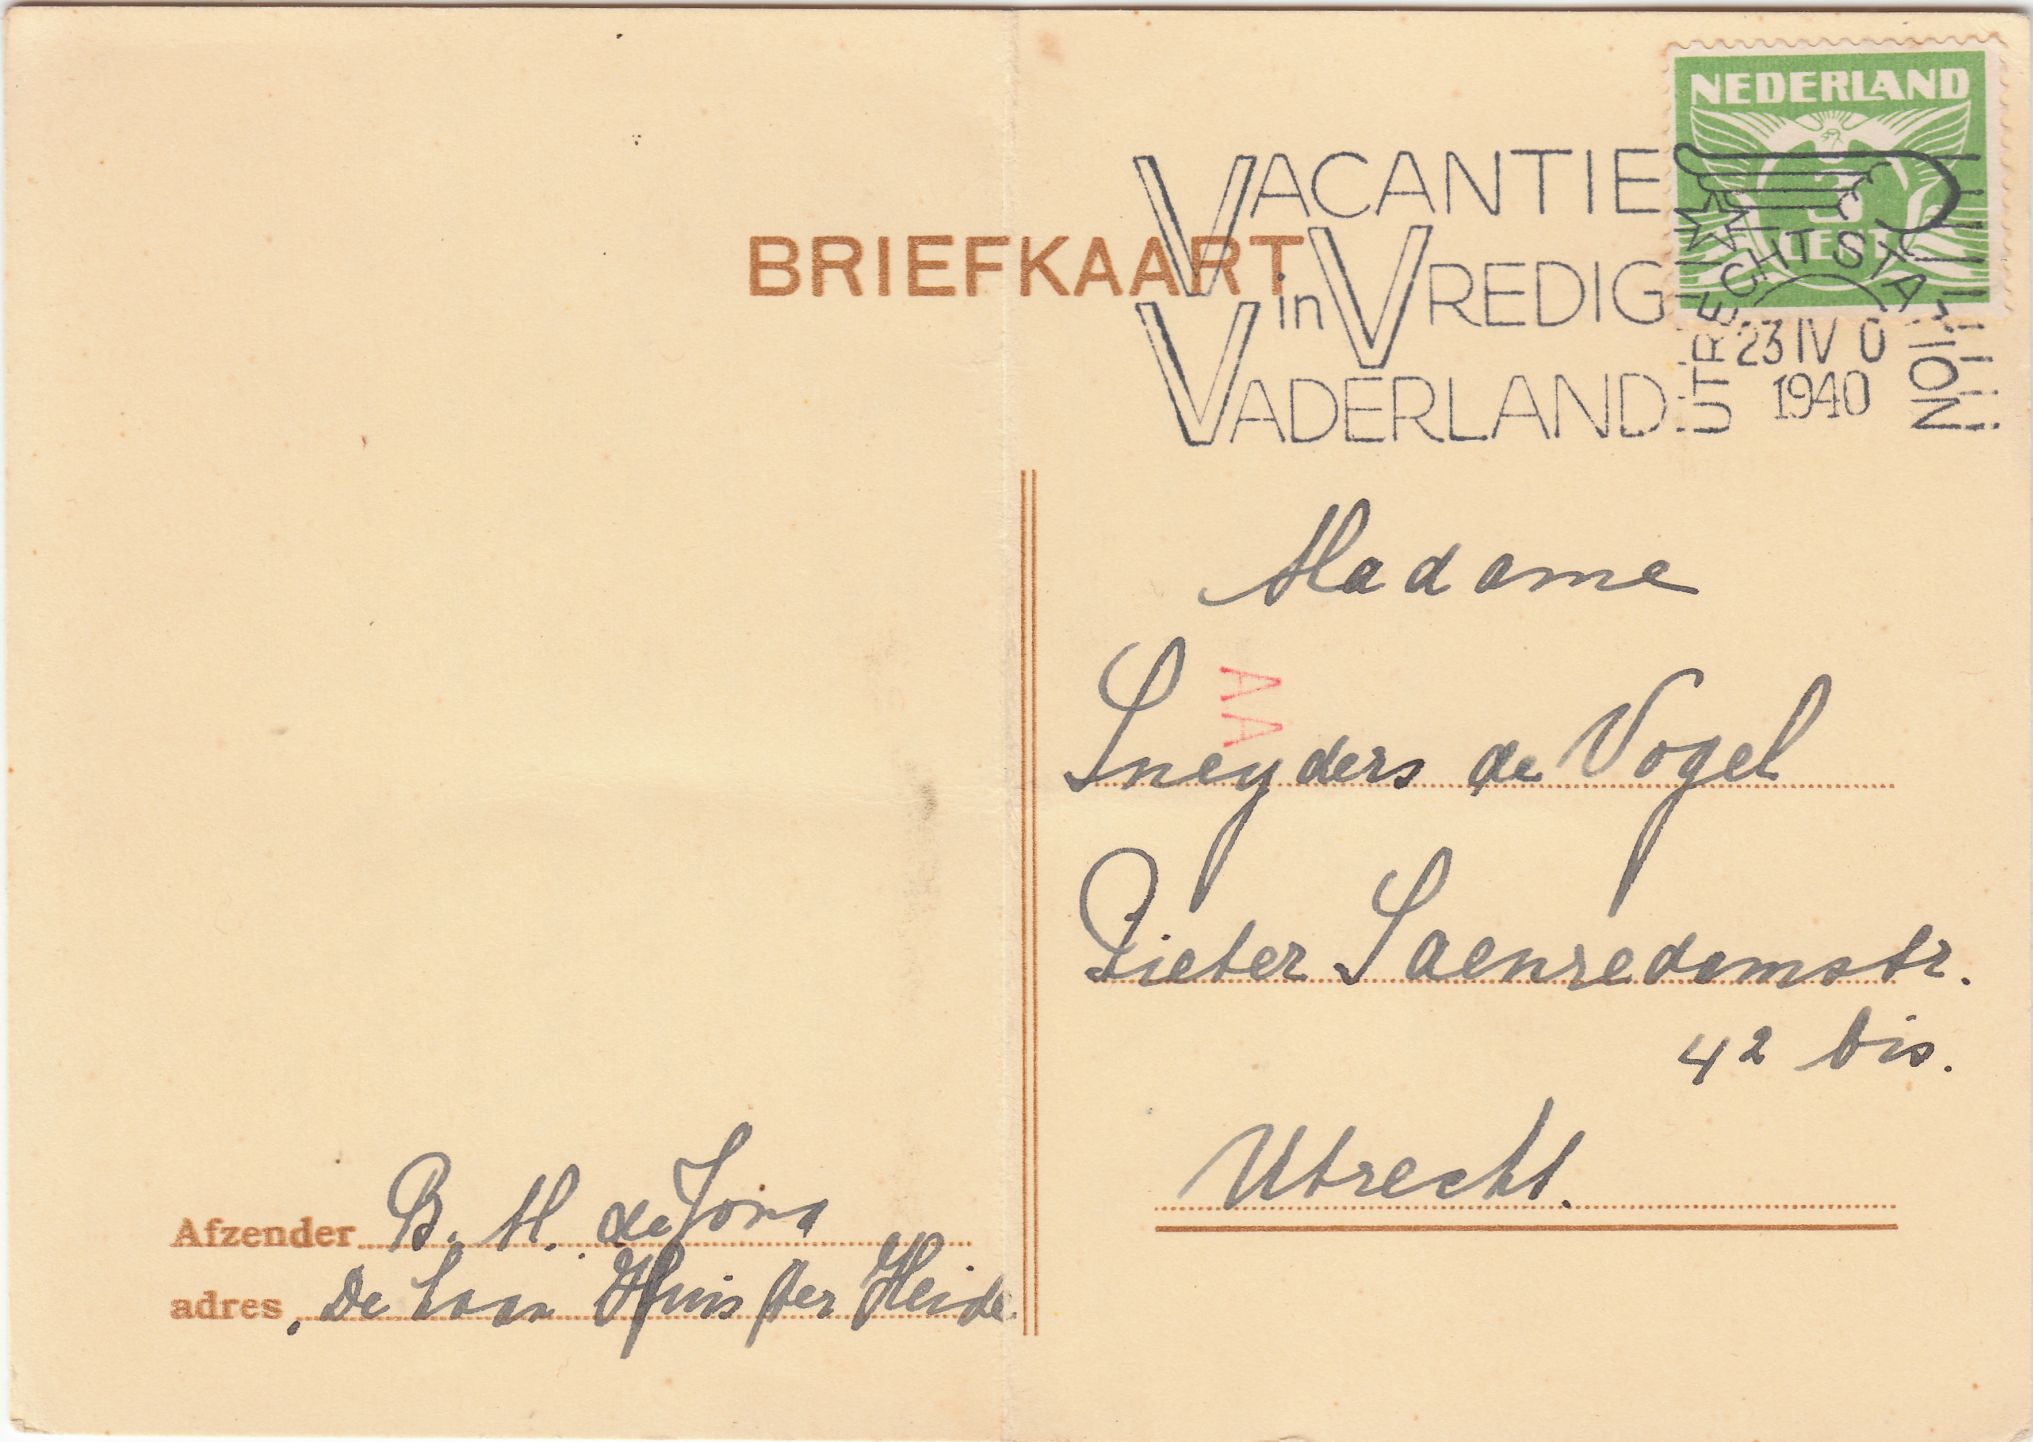 NEDERLAND
3
CENT
VACANTIE
in VREDIG
VADERLAND
UTRECHT STATION
23 IV 0
1940
BRIEFKAART
Madame
AA
Sneyders de Vogel
Pieter Saenredamstr.
42 bis.
Utrecht.
Afzender B. M. de
adres, De Laan Huis ter Heide